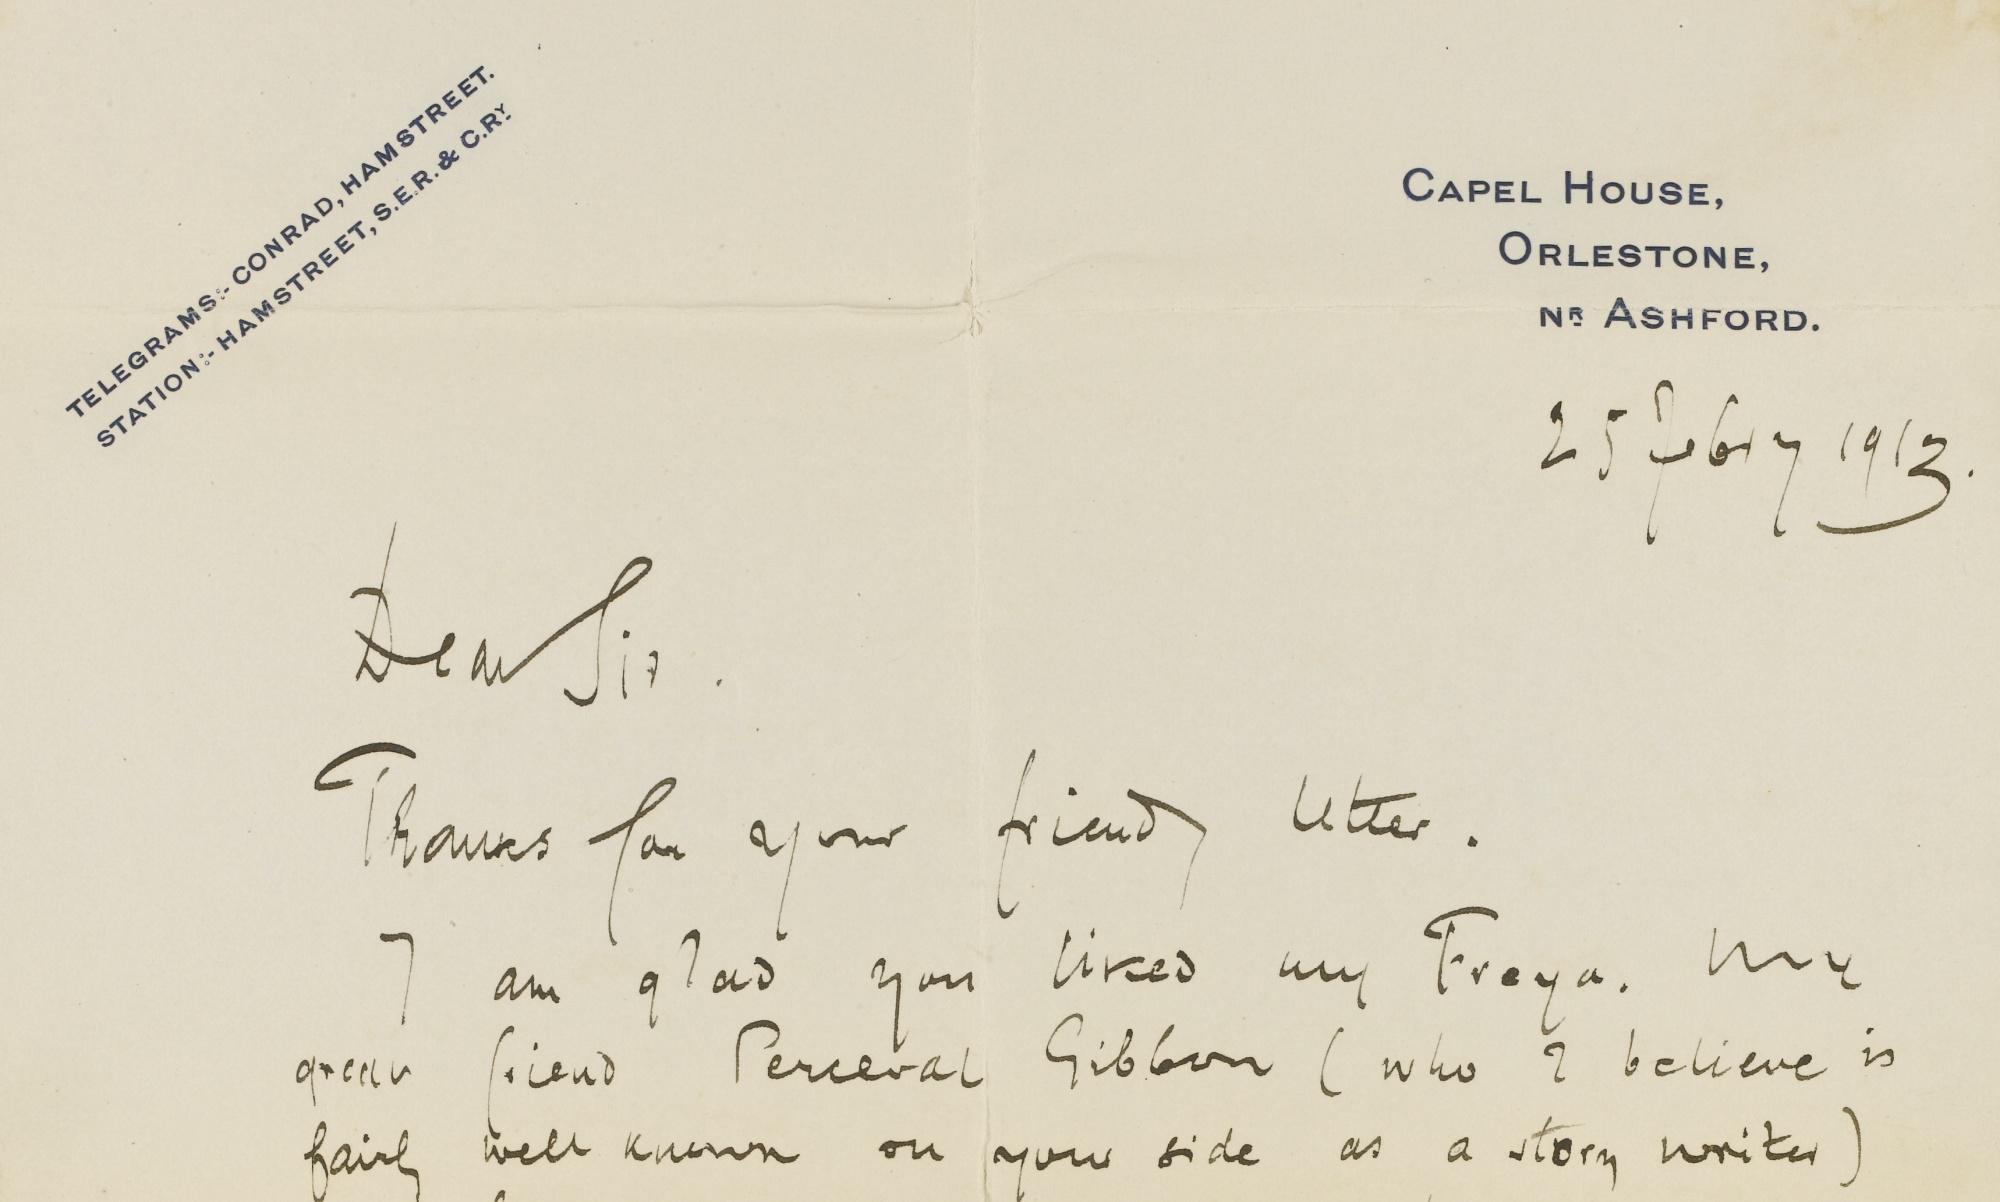 TELEGRAMS:- CONRAD, HAMSTREET.
STATION:- HAMSTREET, S.E.R. & C.RY.
CAPEL HOUSE,
ORLESTONE,
NR ASHFORD.
25 Febry 1913.
Dear Sir.
Thanks for your friendly letter.
I am glad you liked my Freya. My
great friend Perceval Gibbon (who I believe is
fairly well known on your side as a story writer)